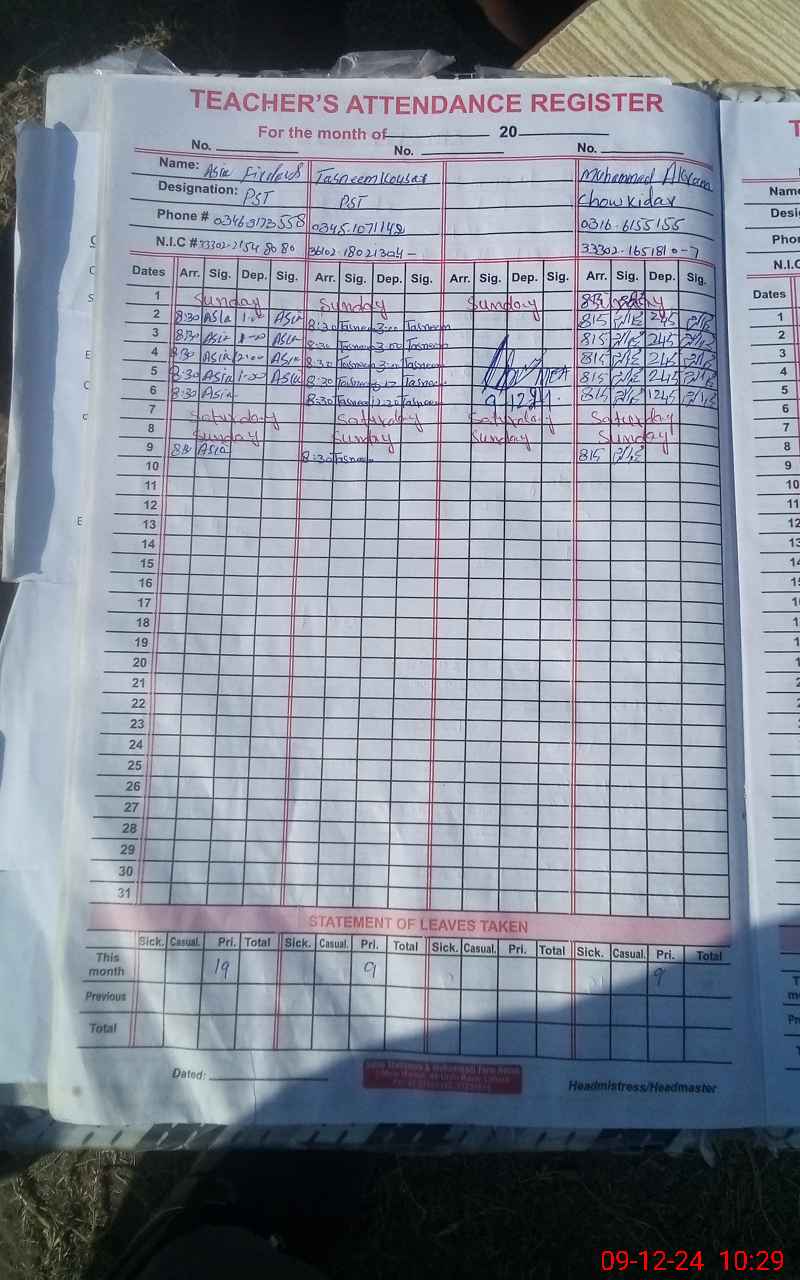 TEACHER'S ATTENDANCE REGISTER
For the month of 20
No. No. No.
Name: Asia Firdous Tasneem Kousar Muhammad Akram
Designation: PST PST Chowkidar
Phone # 0346-3173558 0345.1071142 0316.6155155
N.I.C # 33302-2154 80 80 36102-18021304- 33302-1651810-7
Dates Arr. Sig. Dep. Sig. Arr. Sig. Dep. Sig. Arr. Sig. Dep. Sig. Arr. Sig. Dep. Sig.
1 Sunday Sunday Sunday Sunday
2 8:30 Asia 1:00 Asia 8:30 Tasneem 3:00 Tasneem 815 245
3 8:30 Asia Asia 8:30 Tasneem 3:00 Tasneem 815 245
4 8:30 Asia 2:00 Asia 8:30 Tasneem Tasneem 815 245
5 8:30 Asia 1:00 Asia 8:30 Tasneem Tasneem 815 245
6 8:30 Asia 8:30 Tasneem 12:30 Tasneem 815 1245
7 Saturday Saturday Saturday Saturday
8 Sunday Sunday Sunday Sunday
9 8:30 Asia 8:30 Tasneem 815
10
11
12
13
14
15
16
17
18
19
20
21
22
23
24
25
26
27
28
29
30
31
STATEMENT OF LEAVES TAKEN
Sick. Casual. Pri. Total Sick. Casual. Pri. Total Sick. Casual. Pri. Total Sick. Casual. Pri. Total
This month 19 9 9
Previous
Total
Dated:
Headmistress/Headmaster
09-12-24 10:29